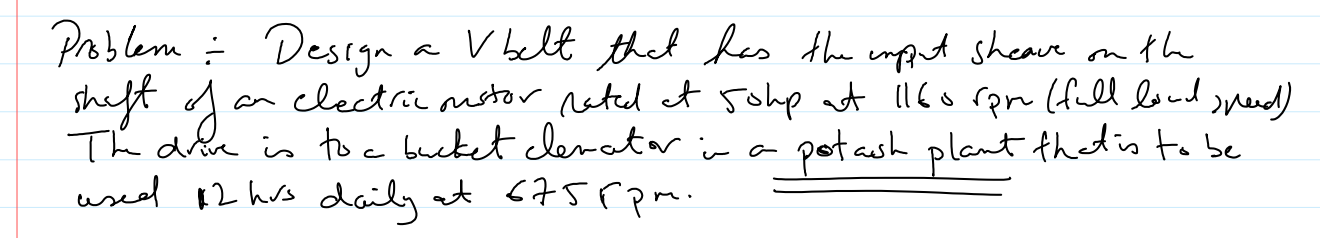 Problem :- Design a V belt that has the input sheave on the
shaft of an electric motor rated at 50hp at 1160 rpm (full load speed)
The drive is to a bucket elevator in a potash plant that is to be
used 12 hrs daily at 675 rpm.